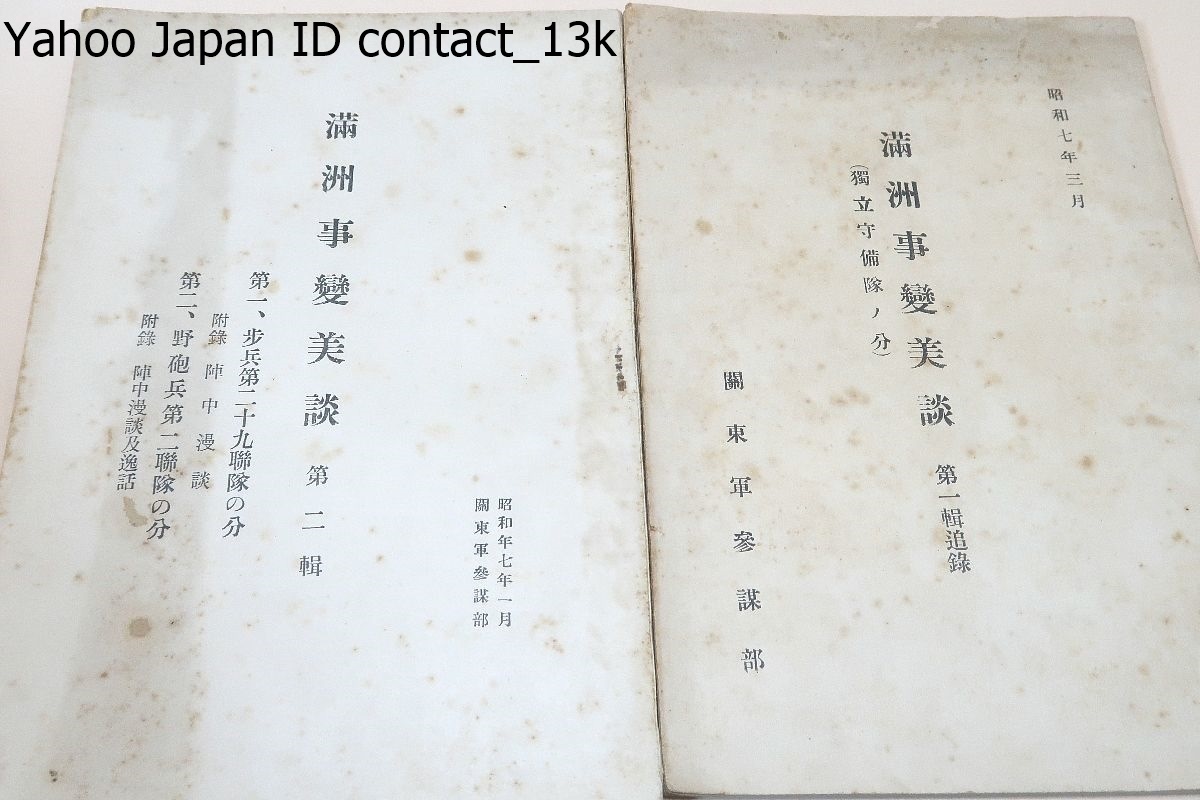 Yahoo Japan ID contact_13k
昭和七年三月
滿洲事變美談 第一輯追錄
(獨立守備隊ノ分)
關東軍參謀部
昭和年七年一月
關東軍參謀部
滿洲事變美談 第二輯
第一、步兵第二十九聯隊の分
附錄 陣中漫談
第二、野砲兵第二聯隊の分
附錄 陣中漫談及逸話